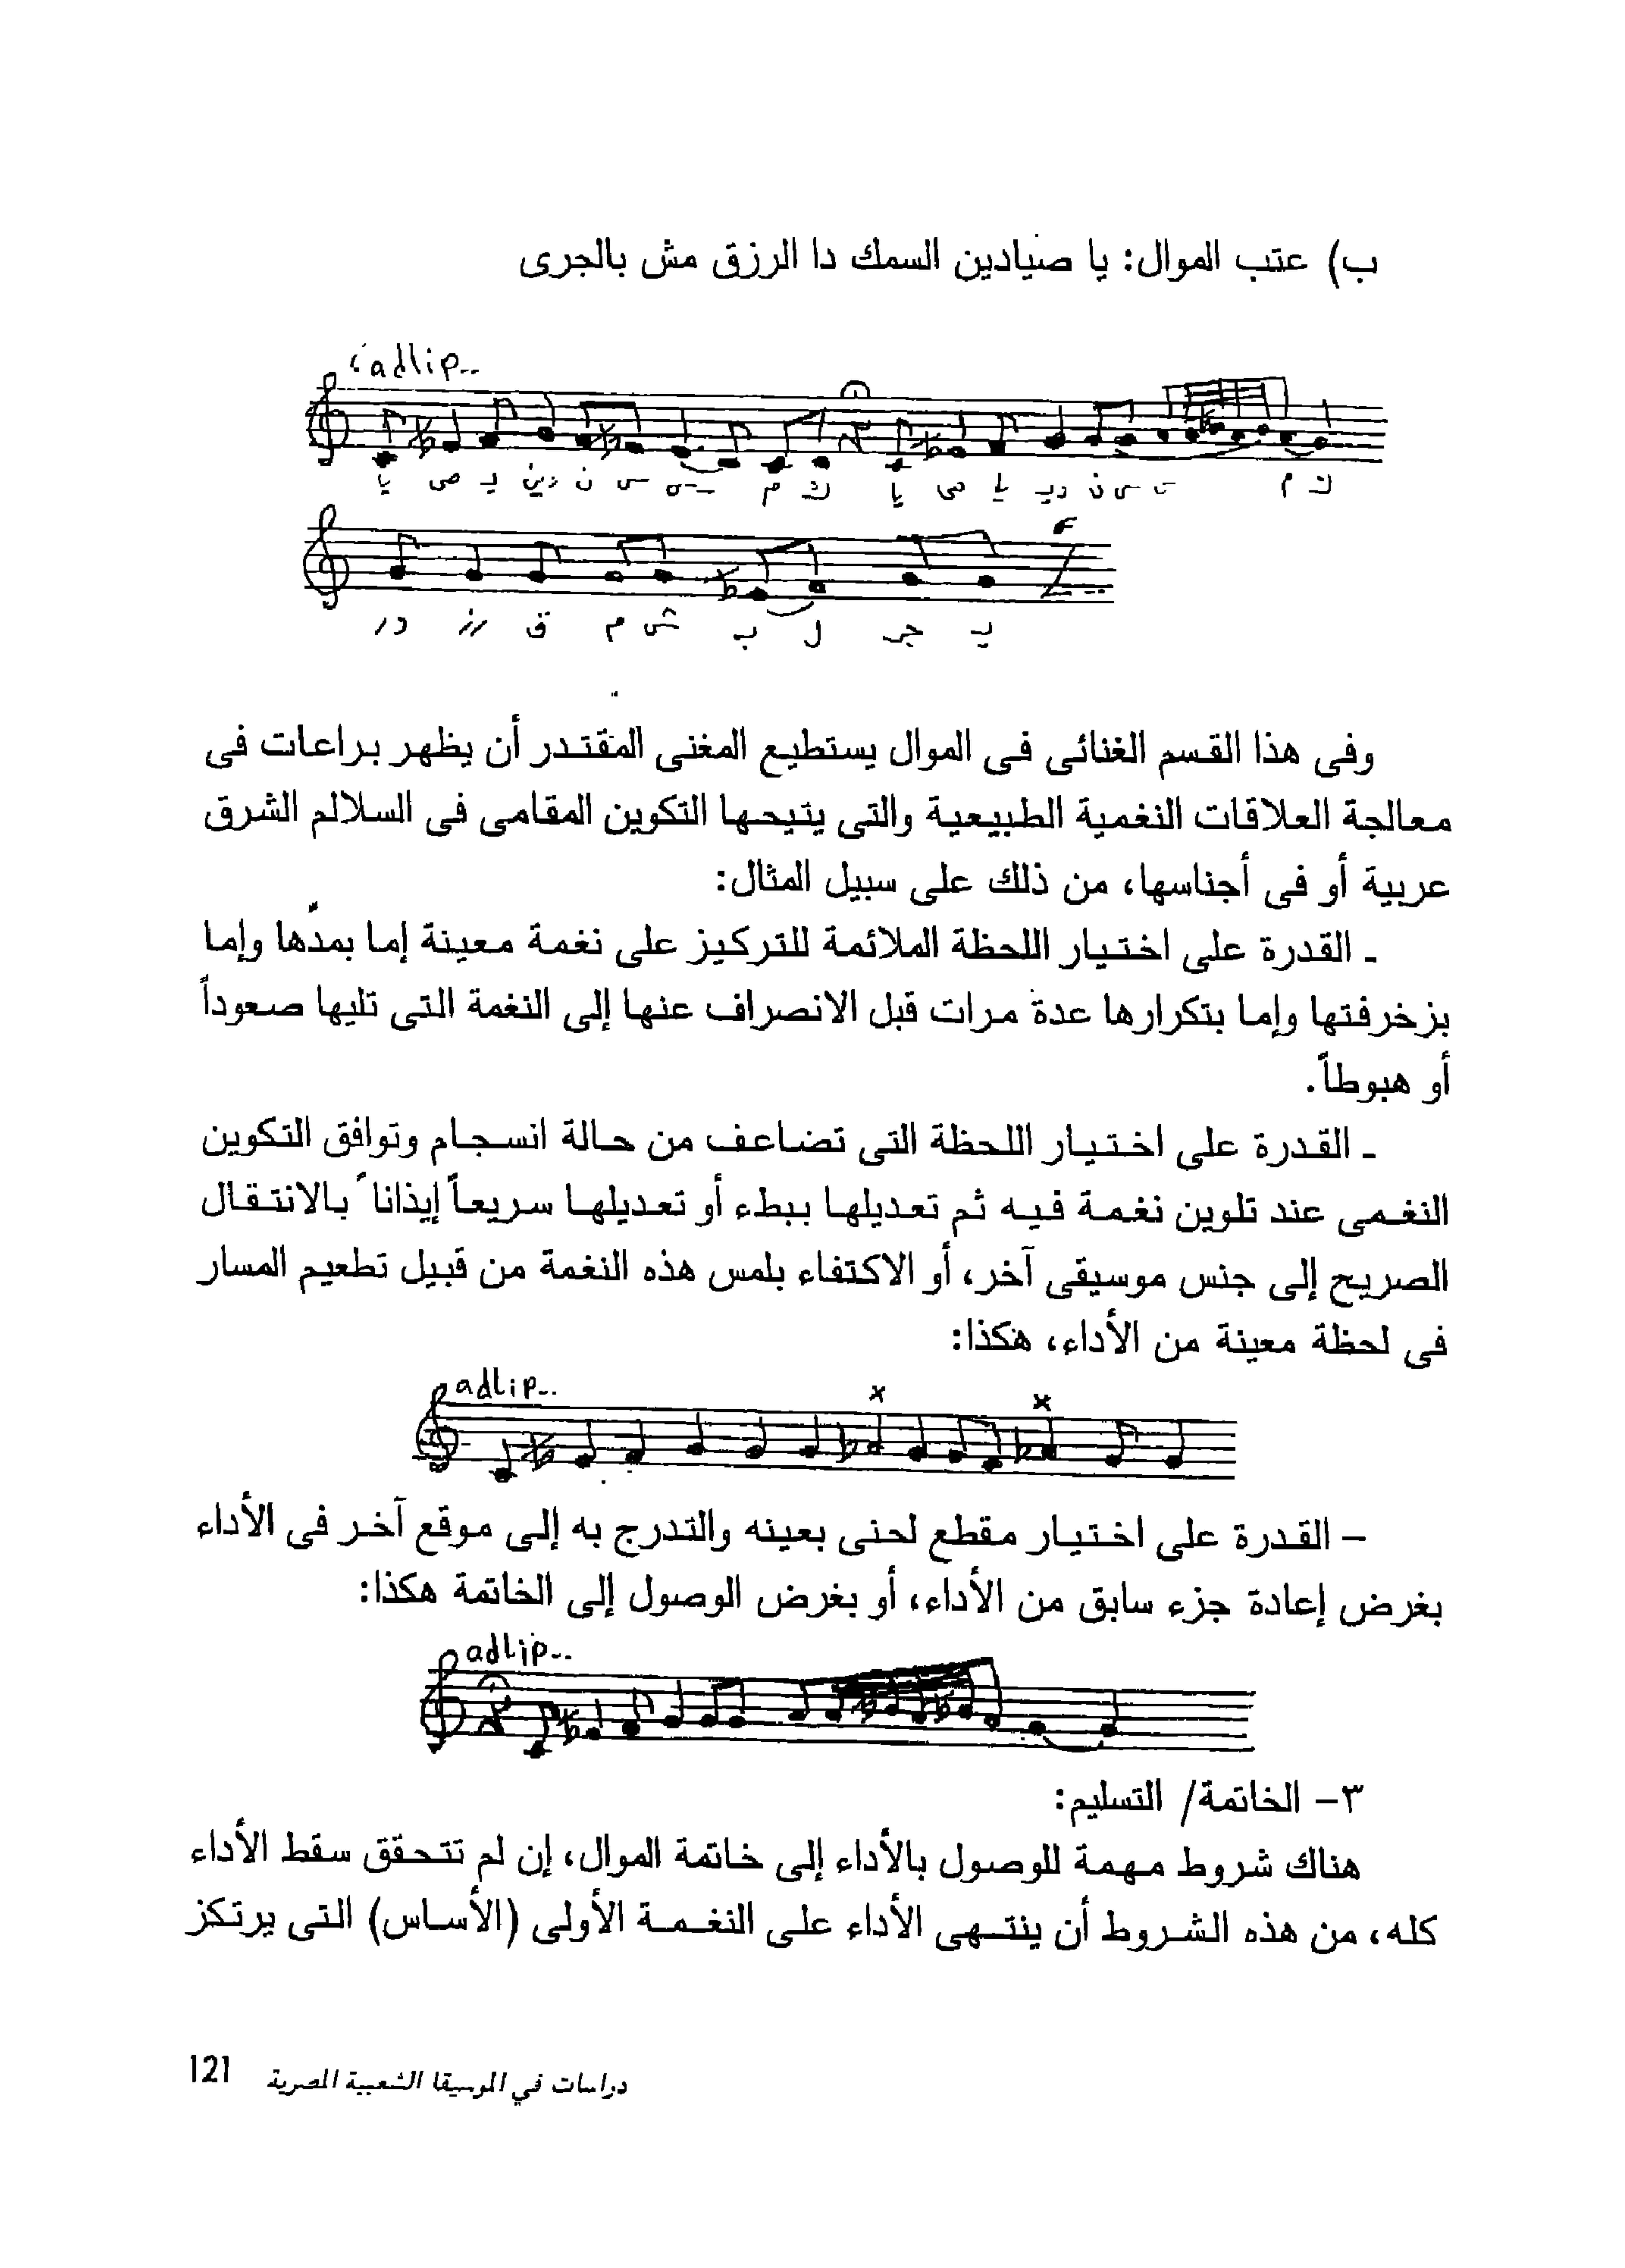 ب) عتب الموال: يا صيادين السمك دا الرزق مش بالجرى
adlip..
يا صى يـ دين ن سـ م ك يا صى يا ديـ ن سـ م ك
در رز ق م ش بـ ل جر يـ
وفى هذا القسم الغنائى فى الموال يستطيع المغنى المقتدر أن يظهر براعات فى
معالجة العلاقات النغمية الطبيعية والتى يتيحها التكوين المقامى فى السلالم الشرق
عربية أو فى أجناسها، من ذلك على سبيل المثال:
ـ القدرة على اختيار اللحظة الملائمة للتركيز على نغمة معينة إما بمدّها وإما
بزخرفتها وإما بتكرارها عدة مرات قبل الانصراف عنها إلى النغمة التى تليها صعوداً
أو هبوطاً.
ـ القدرة على اختيار اللحظة التى تضاعف من حالة انسجام وتوافق التكوين
النغمى عند تلوين نغمة فيه ثم تعديلها ببطء أو تعديلها سريعاً إيذاناً بالانتقال
الصريح إلى جنس موسيقى آخر، أو الاكتفاء بلمس هذه النغمة من قبيل تطعيم المسار
فى لحظة معينة من الأداء، هكذا:
adlip..
x x
– القدرة على اختيار مقطع لحنى بعينه والتدرج به إلى موقع آخر فى الأداء
بغرض إعادة جزء سابق من الأداء، أو بغرض الوصول إلى الخاتمة هكذا:
adlip..
٣– الخاتمة/ التسليم:
هناك شروط مهمة للوصول بالأداء إلى خاتمة الموال، إن لم تتحقق سقط الأداء
كله، من هذه الشروط أن ينتهى الأداء على النغمة الأولى (الأساس) التى يرتكز
دراسات في الموسيقا الشعبية المصرية 121